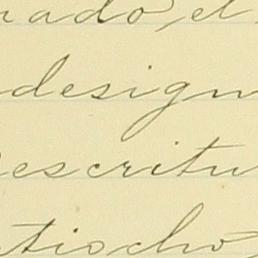 rado, el
design
escritu
tischo,